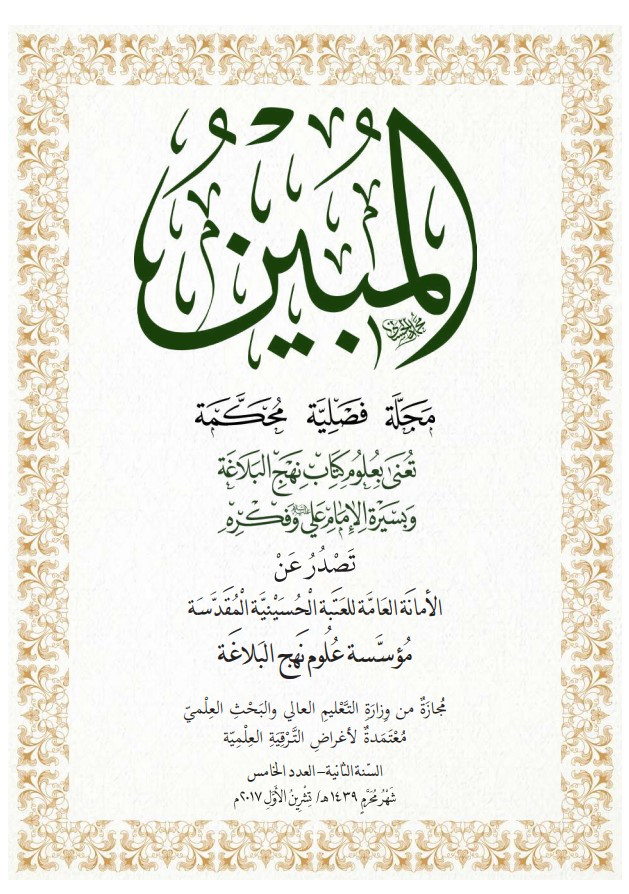 المُبين
مَجَلَّة فَصْلِيَّة مُحَكَّمَة
تُعْنَى بعُلُومِ كِتَابِ نَهْجِ البَلَاغَة
وَبسِيرَة الإِمَامِ عَلي وَفِكْرِهِ
تَصْدُرُ عَنْ
الأمانَة العَامَّة للعَتَبة الْحُسَيْنِيَّة الْمُقَدَّسَة
مُؤسَّسة عُلُوم نَهج البَلاغَة
مُجازَةٌ من وِزارَةِ التَّعْليمِ العالي والبَحْثِ العِلْميّ
مُعْتَمَدةٌ لأغراضِ التَّرْقِيَةِ العِلْمِيّة
السّنة الثانية-العدد الخامس
شَهْرُ مُحَرَّمٍ ١٤٣٩هـ/ تِشْرِينُ الأَوَّلِ ٢٠١٧م